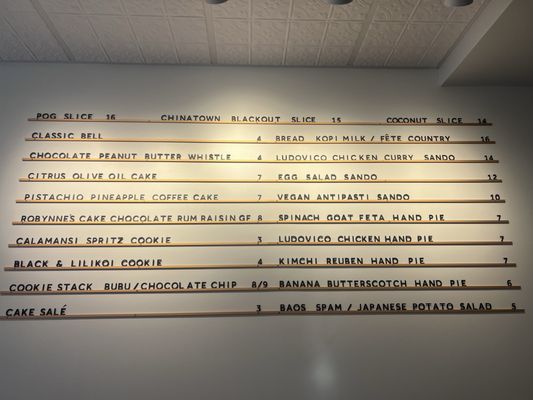 POG SLICE 16 CHINATOWN BLACKOUT SLICE 15 COCONUT SLICE 14
CLASSIC BELL 4 BREAD KOPI MILK / FÊTE COUNTRY 16
CHOCOLATE PEANUT BUTTER WHISTLE 4 LUDOVICO CHICKEN CURRY SANDO 14
CITRUS OLIVE OIL CAKE 7 EGG SALAD SANDO 12
PISTACHIO PINEAPPLE COFFEE CAKE 7 VEGAN ANTIPASTI SANDO 10
ROBYNNE'S CAKE CHOCOLATE RUM RAISIN GF 8 SPINACH GOAT FETA HAND PIE 7
CALAMANSI SPRITZ COOKIE 3 LUDOVICO CHICKEN HAND PIE 7
BLACK & LILIKOI COOKIE 4 KIMCHI REUBEN HAND PIE 7
COOKIE STACK BUBU / CHOCOLATE CHIP 8/9 BANANA BUTTERSCOTCH HAND PIE 6
CAKE SALÉ 3 BAOS SPAM / JAPANESE POTATO SALAD 5